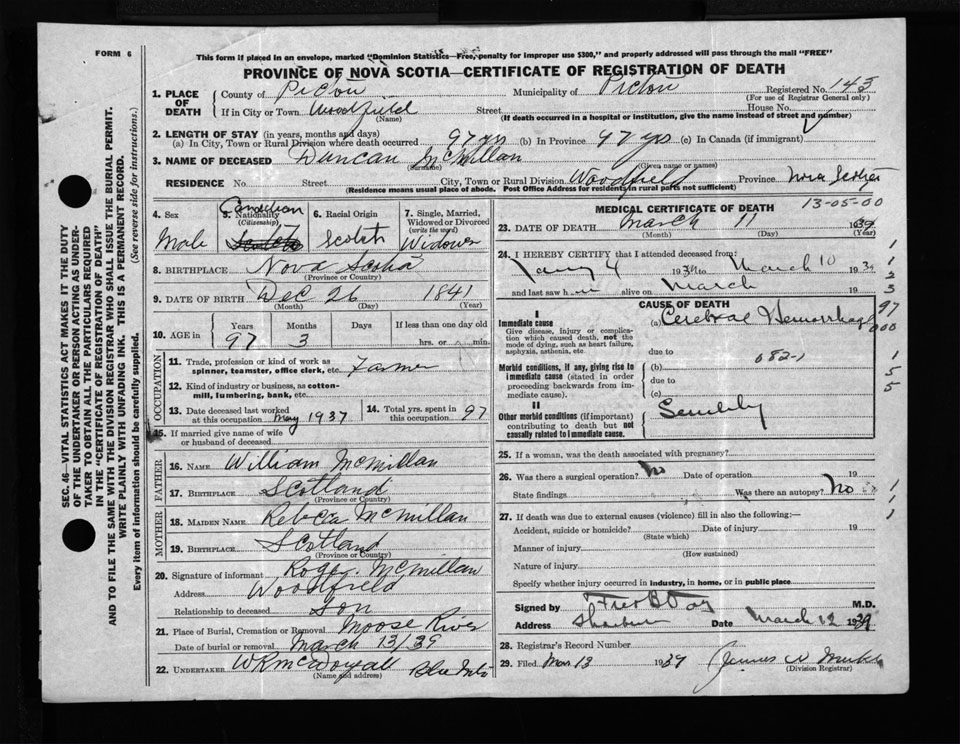 FORM 6
This form if placed in an envelope, marked "Dominion Statistics—Free, penalty for improper use $300," and properly addressed will pass through the mail "FREE"
PROVINCE OF NOVA SCOTIA—CERTIFICATE OF REGISTRATION OF DEATH
1. PLACE OF DEATH County of Pictou Municipality of Pictou Registered No. 143
(For use of Registrar General only)
If in City or Town Woodfield Street House No.
(Name) (If death occurred in a hospital or institution, give the name instead of street and number)
2. LENGTH OF STAY (in years, months and days)
(a) In City, Town or Rural Division where death occurred 97 yrs (b) In Province 97 yrs (c) In Canada (if immigrant)
3. NAME OF DECEASED Duncan McMillan
(Surname) (Given name or names)
RESIDENCE No Street City, Town or Rural Division Woodfield Province Nova Scotia
(Residence means usual place of abode. Post Office Address for residents in rural parts not sufficient)
4. Sex Male
5. Nationality (Citizenship) Canadian
6. Racial Origin Scotch
7. Single, Married, Widowed or Divorced (write the word) Widower
8. BIRTHPLACE Nova Scotia
(Province or Country)
9. DATE OF BIRTH Dec 26 1841
(Month) (Day) (Year)
10. AGE in Years Months Days If less than one day old
97 3 hrs. or min.
OCCUPATION
11. Trade, profession or kind of work as spinner, teamster, office clerk, etc. Farmer
12. Kind of industry or business, as cotton-mill, lumbering, bank, etc.
13. Date deceased last worked at this occupation May 1937
14. Total yrs. spent in this occupation 97
15. If married give name of wife or husband of deceased
FATHER
16. NAME William McMillan
17. BIRTHPLACE Scotland
(Province or Country)
MOTHER
18. MAIDEN NAME Rebcia McMillan
19. BIRTHPLACE Scotland
(Province or Country)
20. Signature of informant Roger McMillan
Address Woodfield
Relationship to deceased Son
21. Place of Burial, Cremation or Removal Moose River
Date of burial or removal March 13/39
22. UNDERTAKER W R McDougall
(Name and address)
MEDICAL CERTIFICATE OF DEATH
13-05-00
23. DATE OF DEATH March 11 1939
(Month) (Day) (Year)
24. I HEREBY CERTIFY that I attended deceased from:
Jany 4 1939 to March 10 1939
and last saw h alive on March 19
CAUSE OF DEATH
I
Immediate cause (a) Cerebral Hemorrhage
Give disease, injury or complication which caused death, not the mode of dying, such as heart failure, asphyxia, asthenia, etc.
due to 082-1
Morbid conditions, if any, giving rise to immediate cause (stated in order proceeding backwards from immediate cause).
(b)
due to
(c)
II
Other morbid conditions (if important) contributing to death but not causally related to immediate cause.
Senility
25. If a woman, was the death associated with pregnancy?
26. Was there a surgical operation? No Date of operation 19
State findings Was there an autopsy? No
27. If death was due to external causes (violence) fill in also the following:—
Accident, suicide or homicide? Date of injury 19
(State which)
Manner of injury
(How sustained)
Nature of injury
Specify whether injury occurred in industry, in home, or in public place
Signed by M.D.
Address Date March 12 1939
28. Registrar's Record Number
29. Filed Mar 13 1939
(Division Registrar)
SEC. 46—VITAL STATISTICS ACT MAKES IT THE DUTY
OF THE UNDERTAKER OR PERSON ACTING AS UNDER-
TAKER TO OBTAIN ALL THE PARTICULARS REQUIRED
IN THE "CERTIFICATE OF REGISTRATION OF DEATH"
AND TO FILE THE SAME WITH THE DIVISION REGISTRAR WHO SHALL ISSUE THE BURIAL PERMIT.
WRITE PLAINLY WITH UNFADING INK. THIS IS A PERMANENT RECORD.
Every item of information should be carefully supplied. (See reverse side for instructions.)